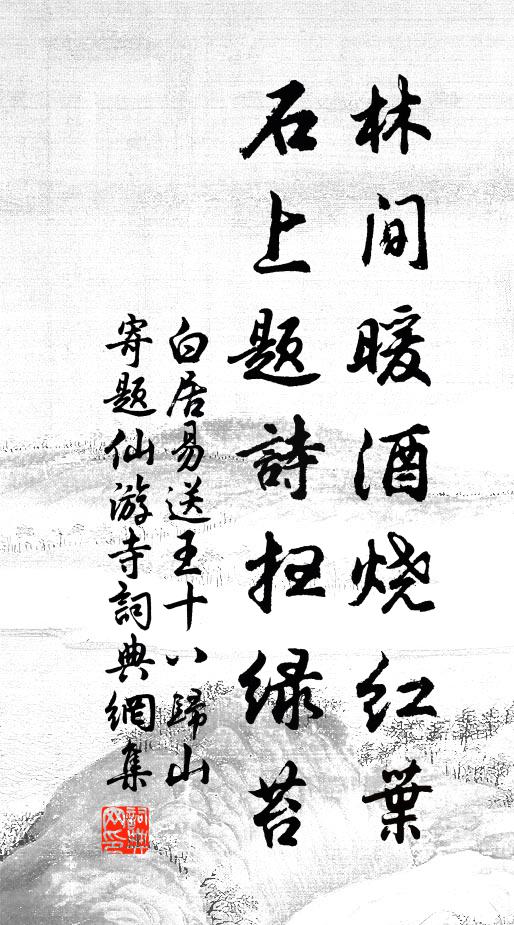 林间暖酒烧红葉
石上题詩扫绿苔
白居易送王十八歸山
寄题仙游寺詞典網集
詞典
网印